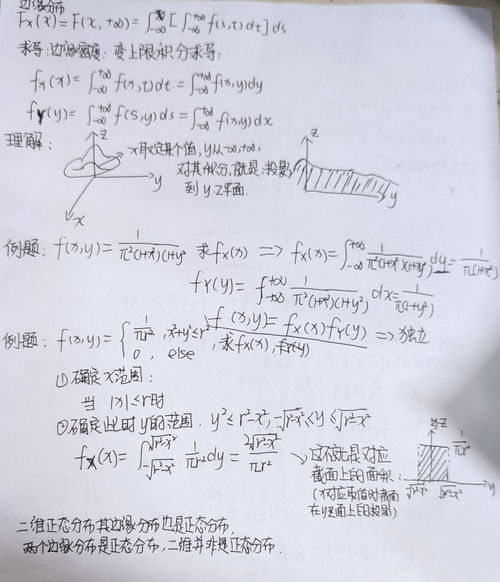 边缘分布
Fx(x) = F(x, +∞) = ∫_{-∞}^{x} [∫_{-∞}^{+∞} f(s,t) dt] ds
求导: 边缘密度: 变上限积分求导:
fx(x) = ∫_{-∞}^{+∞} f(x,t) dt = ∫_{-∞}^{+∞} f(x,y) dy
fY(y) = ∫_{-∞}^{+∞} f(s,y) ds = ∫_{-∞}^{+∞} f(x,y) dx
理解:
z
y
x
x取定某个值, y从-∞,+∞,
对其积分, 就是投影
到 y-z平面.
z
y
例题: f(x,y) = 1/(π²(1+x²)(1+y²)) 求fx(x) => fx(x) = ∫_{-∞}^{+∞} 1/(π²(1+x²)(1+y²)) dy = 1/(π(1+x²))
fY(y) = ∫_{-∞}^{+∞} 1/(π²(1+x²)(1+y²)) dx = 1/(π(1+y²))
f(x,y) = fx(x) fY(y) => 独立
例题: f(x,y) = { 1/πr², x²+y²≤r²
0, else , 求fx(x), fY(y)
① 确定x范围:
当 |x|≤r时
② 确定此时y的范围, y²≤r²-x², -√(r²-x²)≤y≤√(r²-x²)
fx(x) = ∫_{-√(r²-x²)}^{√(r²-x²)} 1/πr² dy = 2√(r²-x²)/πr²
这不就是对应
截面上的面积:
(x对应取值时截面
在yz面上的投影)
z
1/πr²
-√(r²-x²) √(r²-x²) y
二维正态分布其边缘分布也是正态分布,
两个边缘分布是正态分布, 二维并非是正态分布.